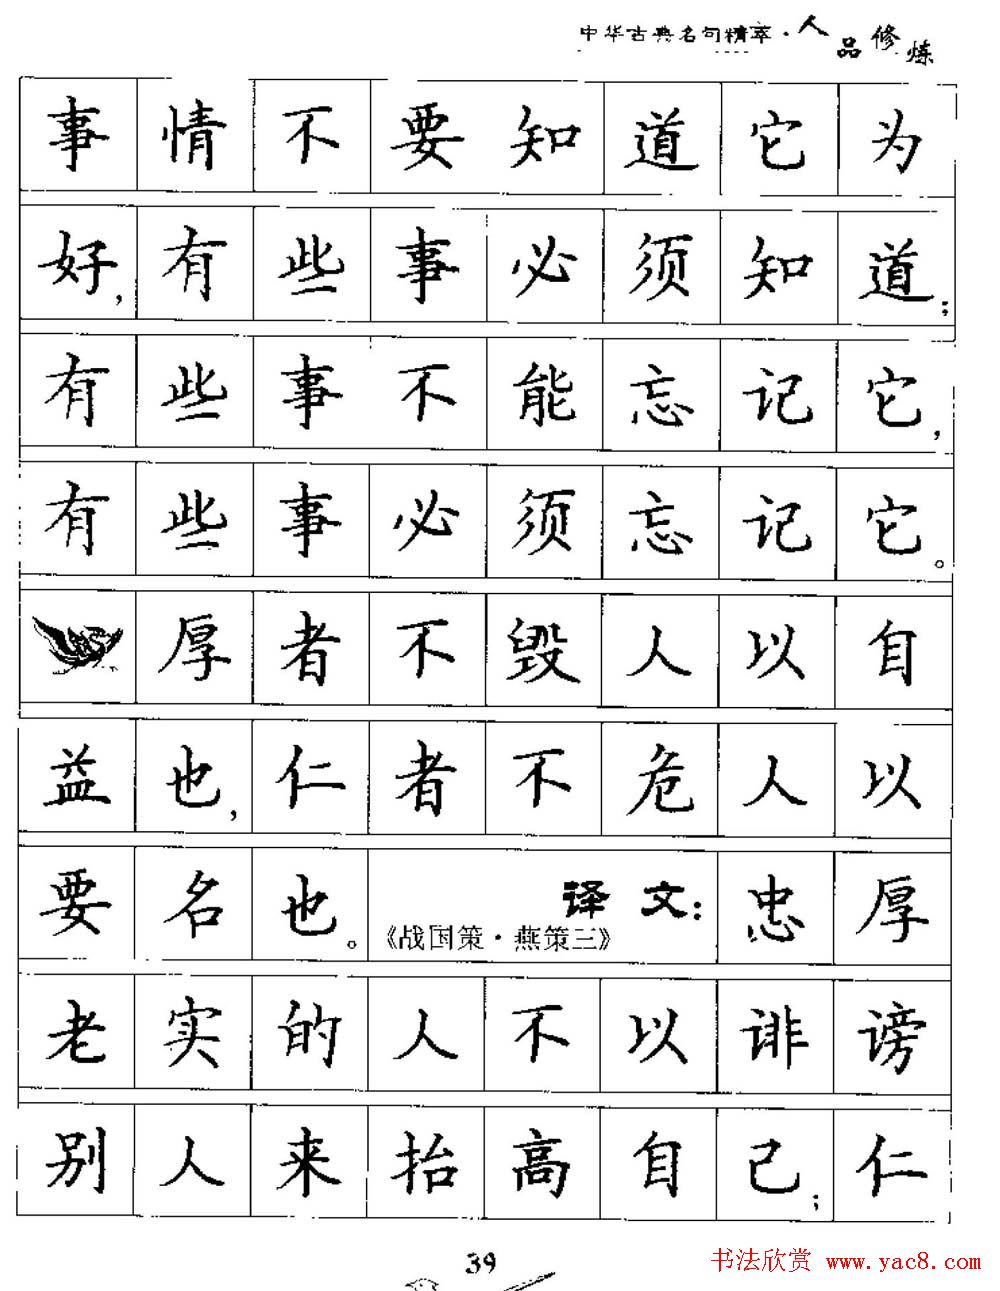 中华古典名句精萃·人品修炼
事情不要知道它为
好,有些事必须知道;
有些事不能忘记它,
有些事必须忘记它。
厚者不毁人以自
益也,仁者不危人以
要名也。《战国策·燕策三》译文:忠厚
老实的人不以诽谤
别人来抬高自己;仁
39
书法欣赏 www.yac8.com